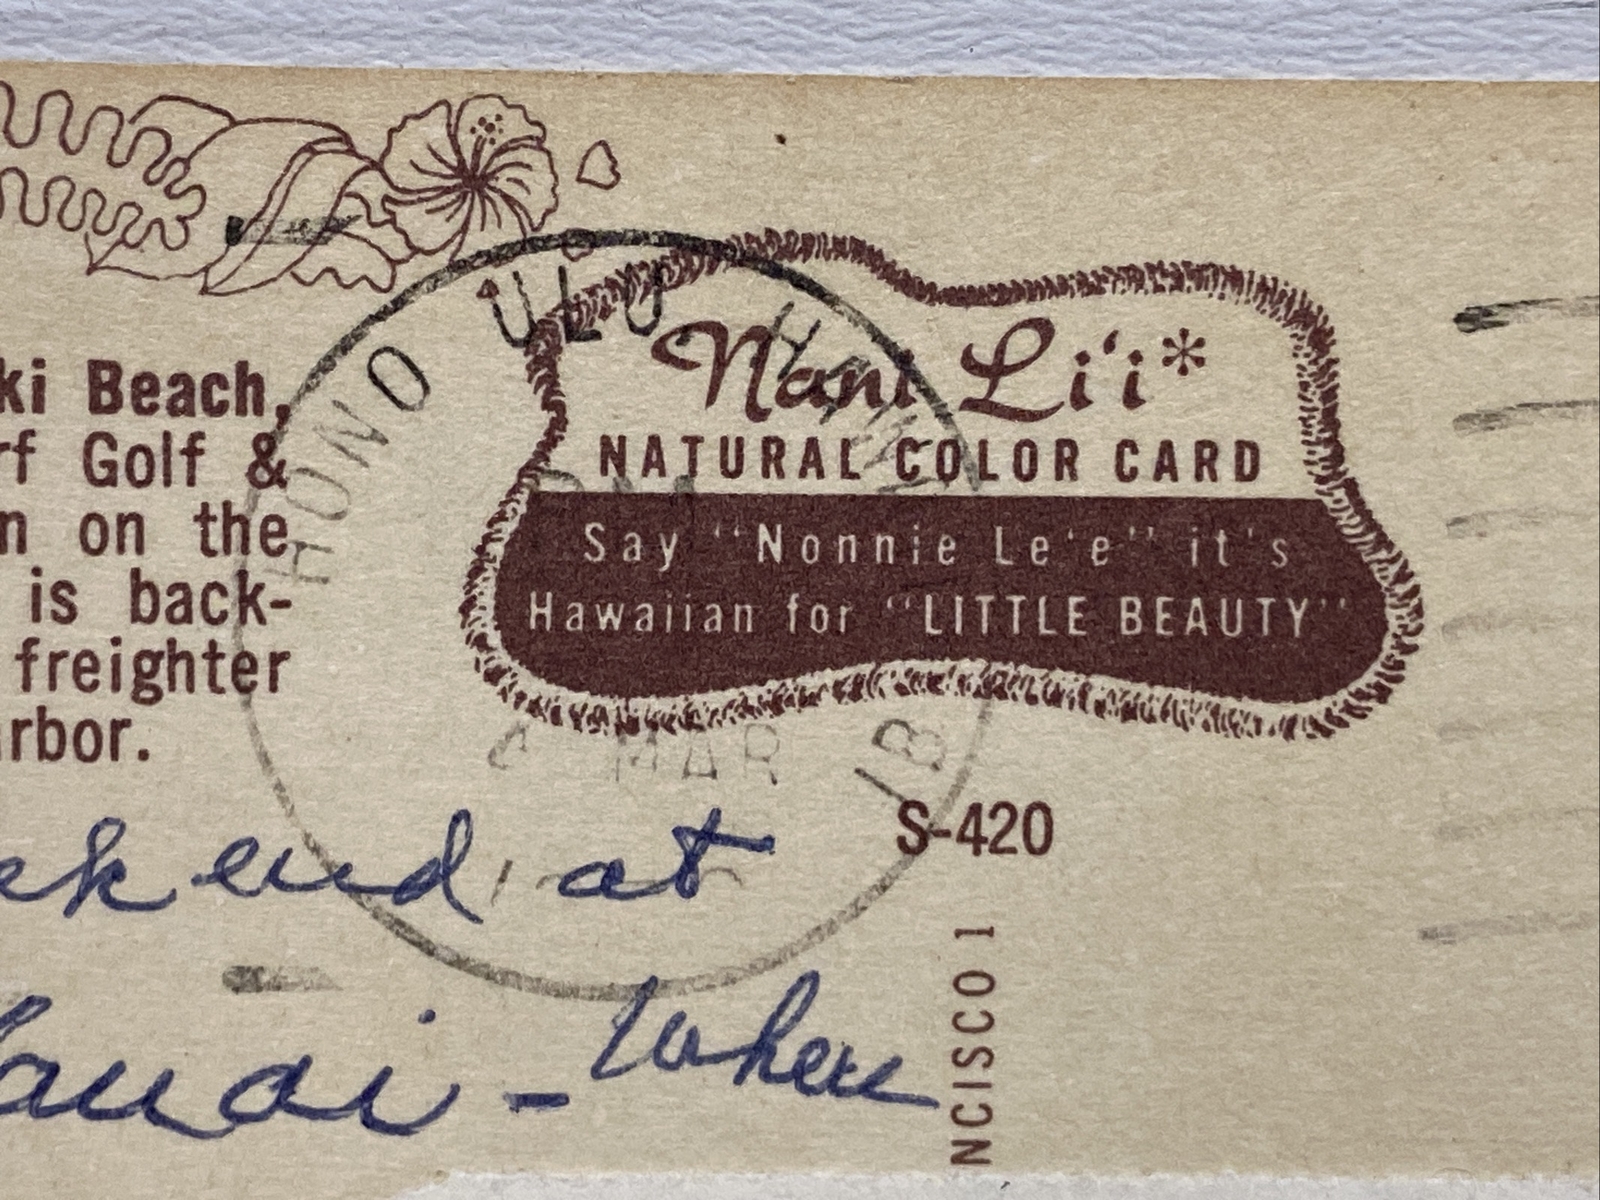 ki Beach,
rf Golf &
n on the
is back-
freighter
arbor.
HONOLULU HAWAII
PM
MAR
1B
Nani Li‘i*
NATURAL COLOR CARD
Say "Nonnie Le‘e" it's
Hawaiian for "LITTLE BEAUTY"
S-420
NCISCO 1
ek end at
Kauai - Where